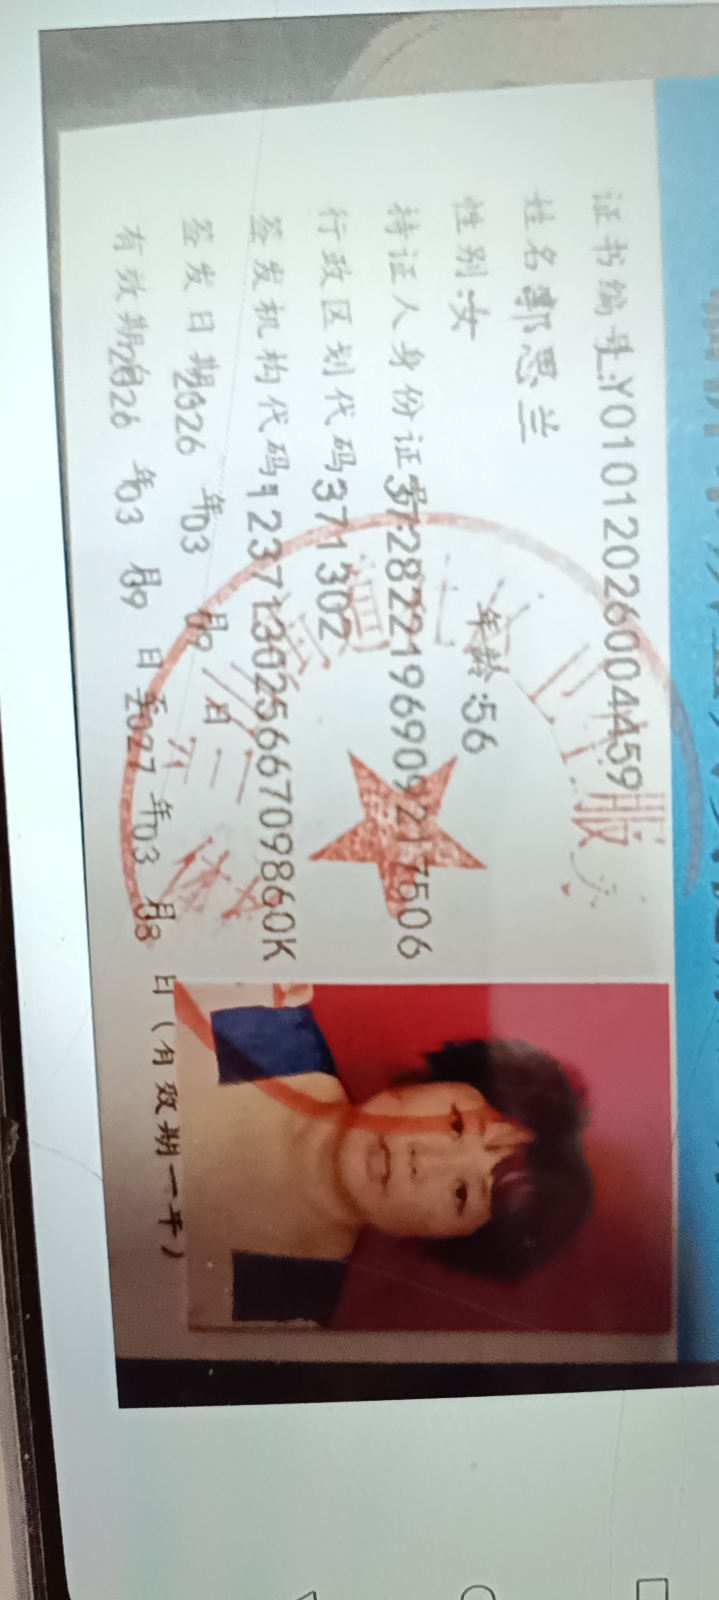 证书编号:Y01012026004459
姓名:郭思兰
性别:女 年龄:56
持证人身份证号:372822196909217506
行政区划代码:371302
签发机构代码:12371302566709860K
签发日期:2026年03月09日
有效期自2026年03月09日至2027年03月08日(有效期一年)